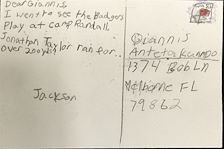 Dear Giannis
I went to see the Badgers
Play at camp Randall
Jonathan Taylor ran for..
over 200yds!
Jackson
Giannis
Antetokunmpo
1374 Bob Ln
Melborne FL
79862